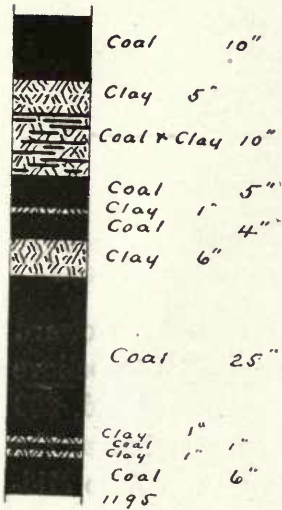 Coal 10"
Clay 5"
Coal & Clay 10"
Coal 5"
Clay 1"
Coal 4"
Clay 6"
Coal 25"
Clay 1"
Coal 1"
Clay 1"
Coal 6"
1195